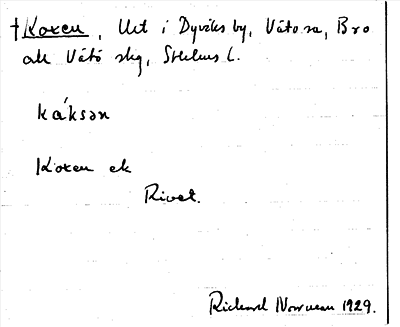 †Koxen, Urt i Dyviks by, Vätö sn, Bro
och Vätö skg, Sthlms l.
kák​sən
Koxen ek
Rivet.
Richard Norrman 1929.